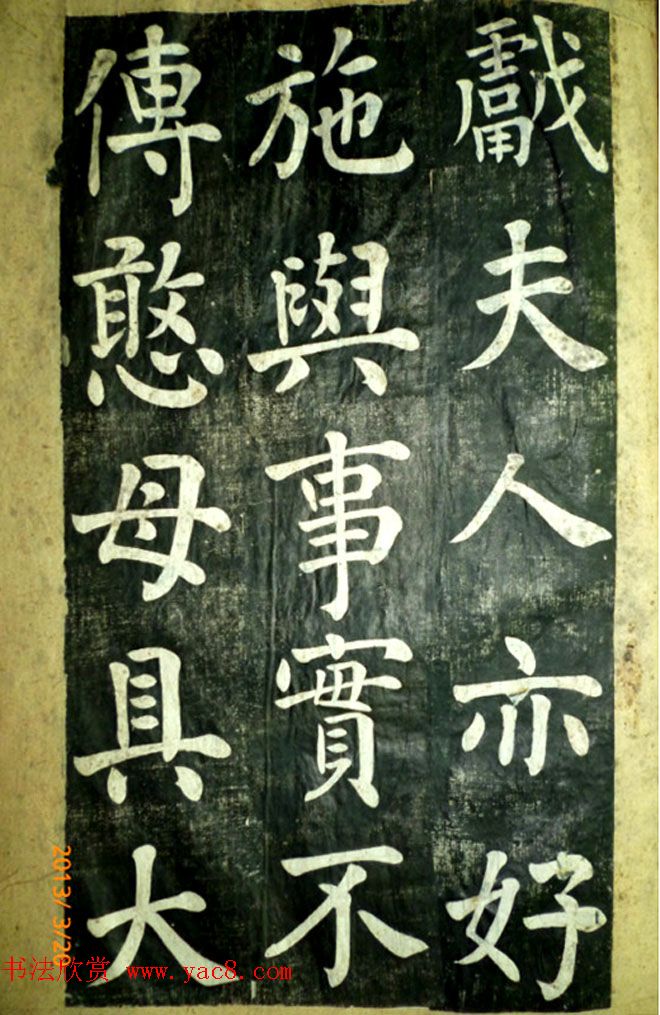 夫人亦好
施與事實不
傳憨母具大
2013/3/20
书法欣赏 www.yac8.com